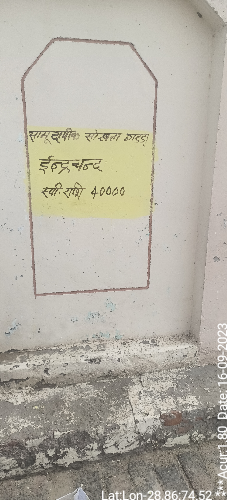 सामूहीक सोखता काडढा
ईन्द्रचन्द
स्वी.राशि 40000
Lat:Lon-28.86:74.52
*** Acur:1.80 Date:16-09-2023